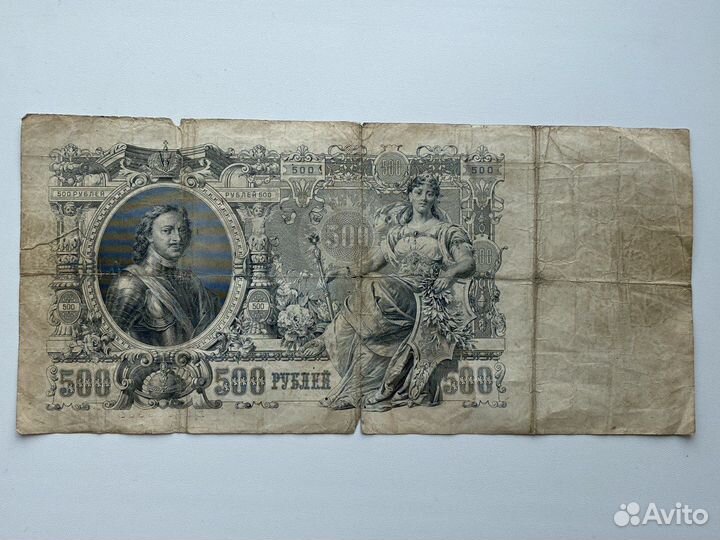 500 500
500 РУБЛЕЙ РУБЛЕЙ 500
500
500 500
500 500 РУБЛЕЙ 500
Avito